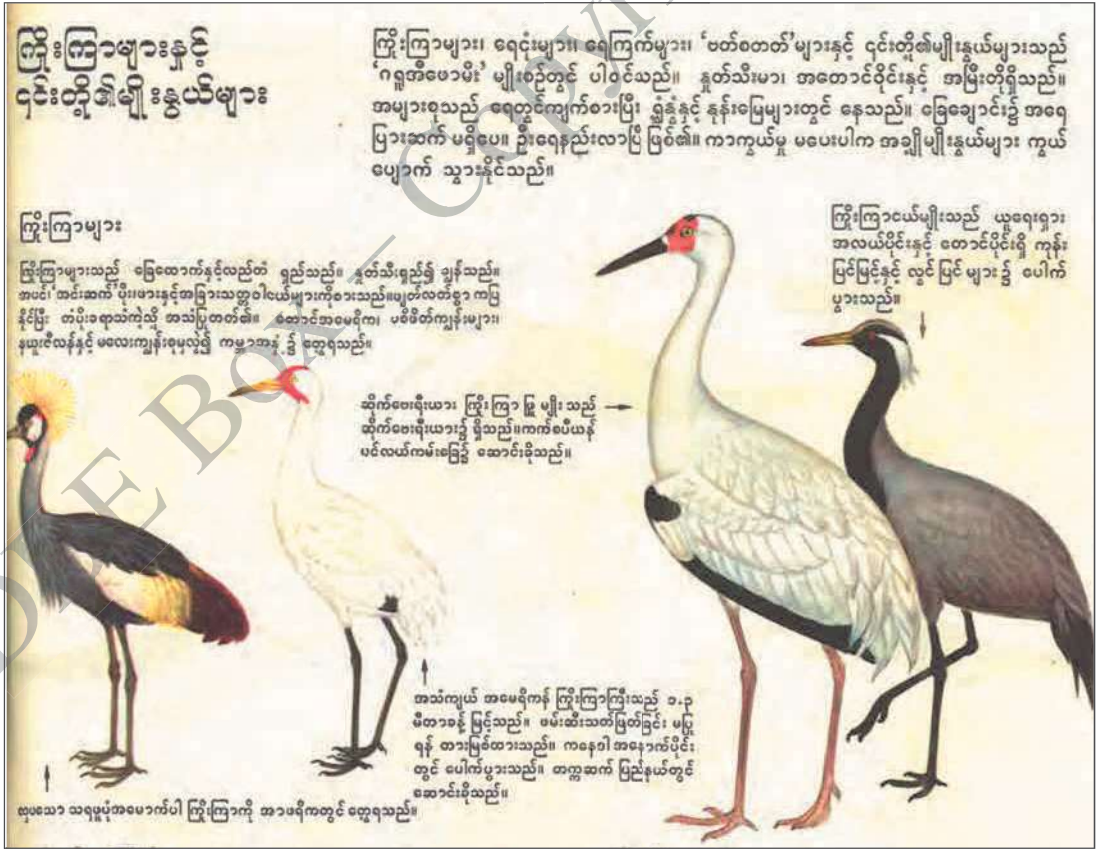 ကြိုးကြာများနှင့်
၎င်းတို့၏မျိုးနွယ်များ
ကြိုးကြာများ၊ ရေငုံးများ၊ ရေကြက်များ၊ ‘ဗတ်စတတ်’များနှင့် ၎င်းတို့၏မျိုးနွယ်များသည်
‘ဂရူအီဖောမီး’ မျိုးစဉ်တွင် ပါဝင်သည်။ နှုတ်သီးမာ၊ အတောင်ဝိုင်းနှင့် အမြီးတိုရှိသည်။
အများစုသည် ရေတွင်ကျက်စားပြီး ရွှံ့နွံနှင့် နုန်းမြေများတွင် နေသည်။ ခြေချောင်း၌ အရေ
ပြားဆက် မရှိပေ။ ဦးရေနည်းလာပြီ ဖြစ်၏။ ကာကွယ်မှု မပေးပါက အချို့မျိုးနွယ်များ ကွယ်
ပျောက် သွားနိုင်သည်။
ကြိုးကြာများ
ကြိုးကြာများသည် ခြေထောက်နှင့်လည်တံ ရှည်သည်။ နှုတ်သီးရှည်၍ ချွန်သည်။
အပင်၊ အင်းဆက် ပိုးဖားနှင့်အခြားသတ္တဝါငယ်များကိုစားသည်။ဖျတ်လတ်စွာ ကပြ
နိုင်ပြီး တံပိုးခရာသံကဲ့သို့ အသံပြုတတ်၏။ တောင်အမေရိက၊ ပစိဖိတ်ကျွန်းများ၊
နယူးဇီလန်နှင့် မလေးကျွန်းစုမှလွဲ၍ ကမ္ဘာအနှံ့၌ တွေ့ရသည်။
ကြိုးကြာငယ်မျိုးသည် ယူရေးရှား
အလယ်ပိုင်းနှင့် တောင်ပိုင်းရှိ ကုန်း
ပြင်မြင့်နှင့် လွင်ပြင် များ၌ ပေါက်
ပွားသည်။
ဆိုက်ဗေးရီးယား ကြိုးကြာ ဖြူ မျိုး သည်
ဆိုက်ဗေးရီးယား၌ ရှိသည်။ကက်စပီယန်
ပင်လယ်ကမ်းခြေ၌ ဆောင်းခိုသည်။
အသံကျယ် အမေရိကန် ကြိုးကြာကြီးသည် ၁.၃
မီတာခန့် မြင့်သည်။ ဖမ်းဆီးသတ်ဖြတ်ခြင်း မပြု
ရန် တားမြစ်ထားသည်။ ကနေဒါ အနောက်ပိုင်း
တွင် ပေါက်ပွားသည်။ တက္ကဆက် ပြည်နယ်တွင်
ဆောင်းခိုသည်။
လှပသော သရဖူပုံအမောက်ပါ ကြိုးကြာကို အာဖရိကတွင် တွေ့ရသည်။